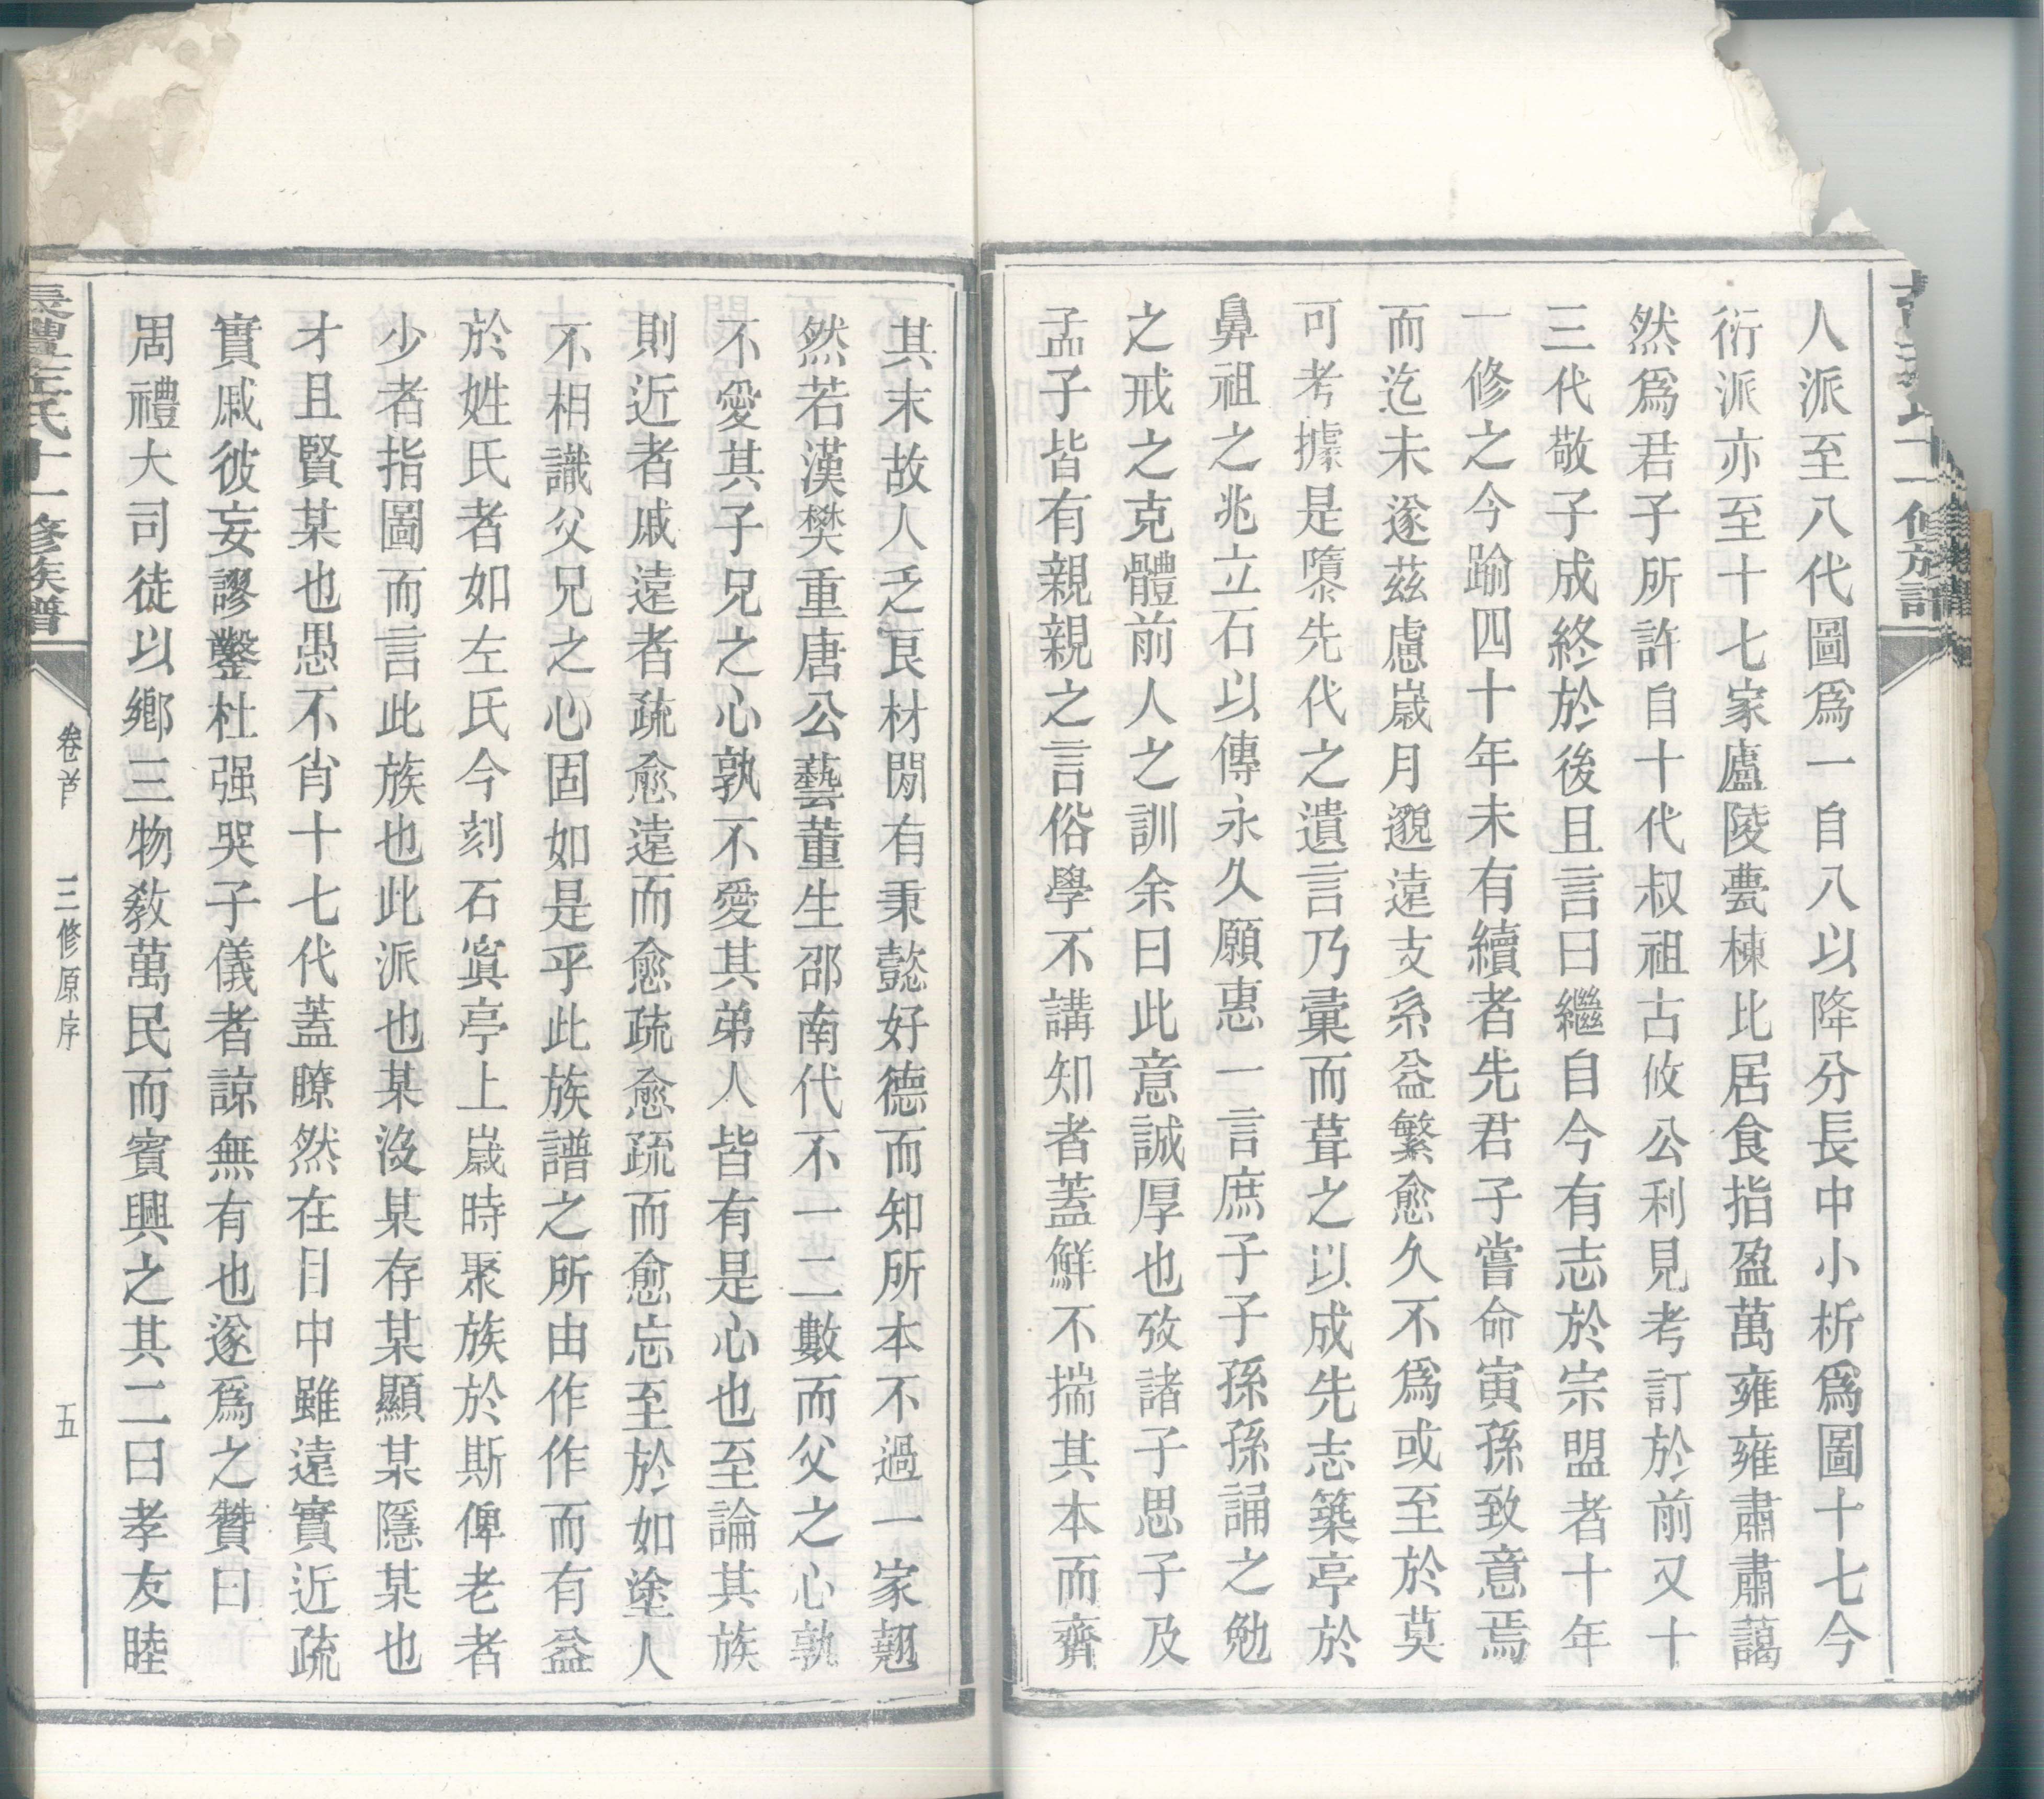 人派至八代圖爲一自八以降分長中小析爲圖十七今
衍派亦至十七家廬陵甍棟比居食指盈萬雍雍肅肅藹
然爲君子所許自十代叔祖古攸公利見考訂於前又十
三代敬子成終於後且言曰繼自今有志於宗盟者十年
一修之今踰四十年未有續者先君子嘗命寅孫致意焉
而迄未遂茲慮嵗月邈遠支系益繁愈久不爲或至於莫
可考據是隳先代之遺言乃彙而葺之以成先志築亭於
鼻祖之兆立石以傳永久願惠一言庶子子孫孫誦之勉
之戒之克體前人之訓余曰此意誠厚也攷諸子思子及
孟子皆有親親之言俗學不講知者蓋鮮不揣其本而齊
其末故人乏良材閒有秉懿好德而知所本不過一家翹
然若漢樊重唐公藝董生邵南代不一二數而父之心孰
不愛其子兄之心孰不愛其弟人皆有是心也至論其族
則近者戚遠者疏愈遠而愈疏愈疏而愈忘至於如塗人
不相識父兄之心固如是乎此族譜之所由作作而有益
於姓氏者如左氏今刻石寘亭上嵗時聚族於斯俾老者
少者指圖而言此族也此派也某沒某存某顯某隱某也
才且賢某也愚不肖十七代蓋瞭然在目中雖遠實近疏
實戚彼妄謬鑿杜强哭子儀者諒無有也遂爲之贊曰
周禮大司徒以鄉三物敎萬民而賓興之其二曰孝友睦
長澧左氏十一修族譜
卷首
三修原序
五